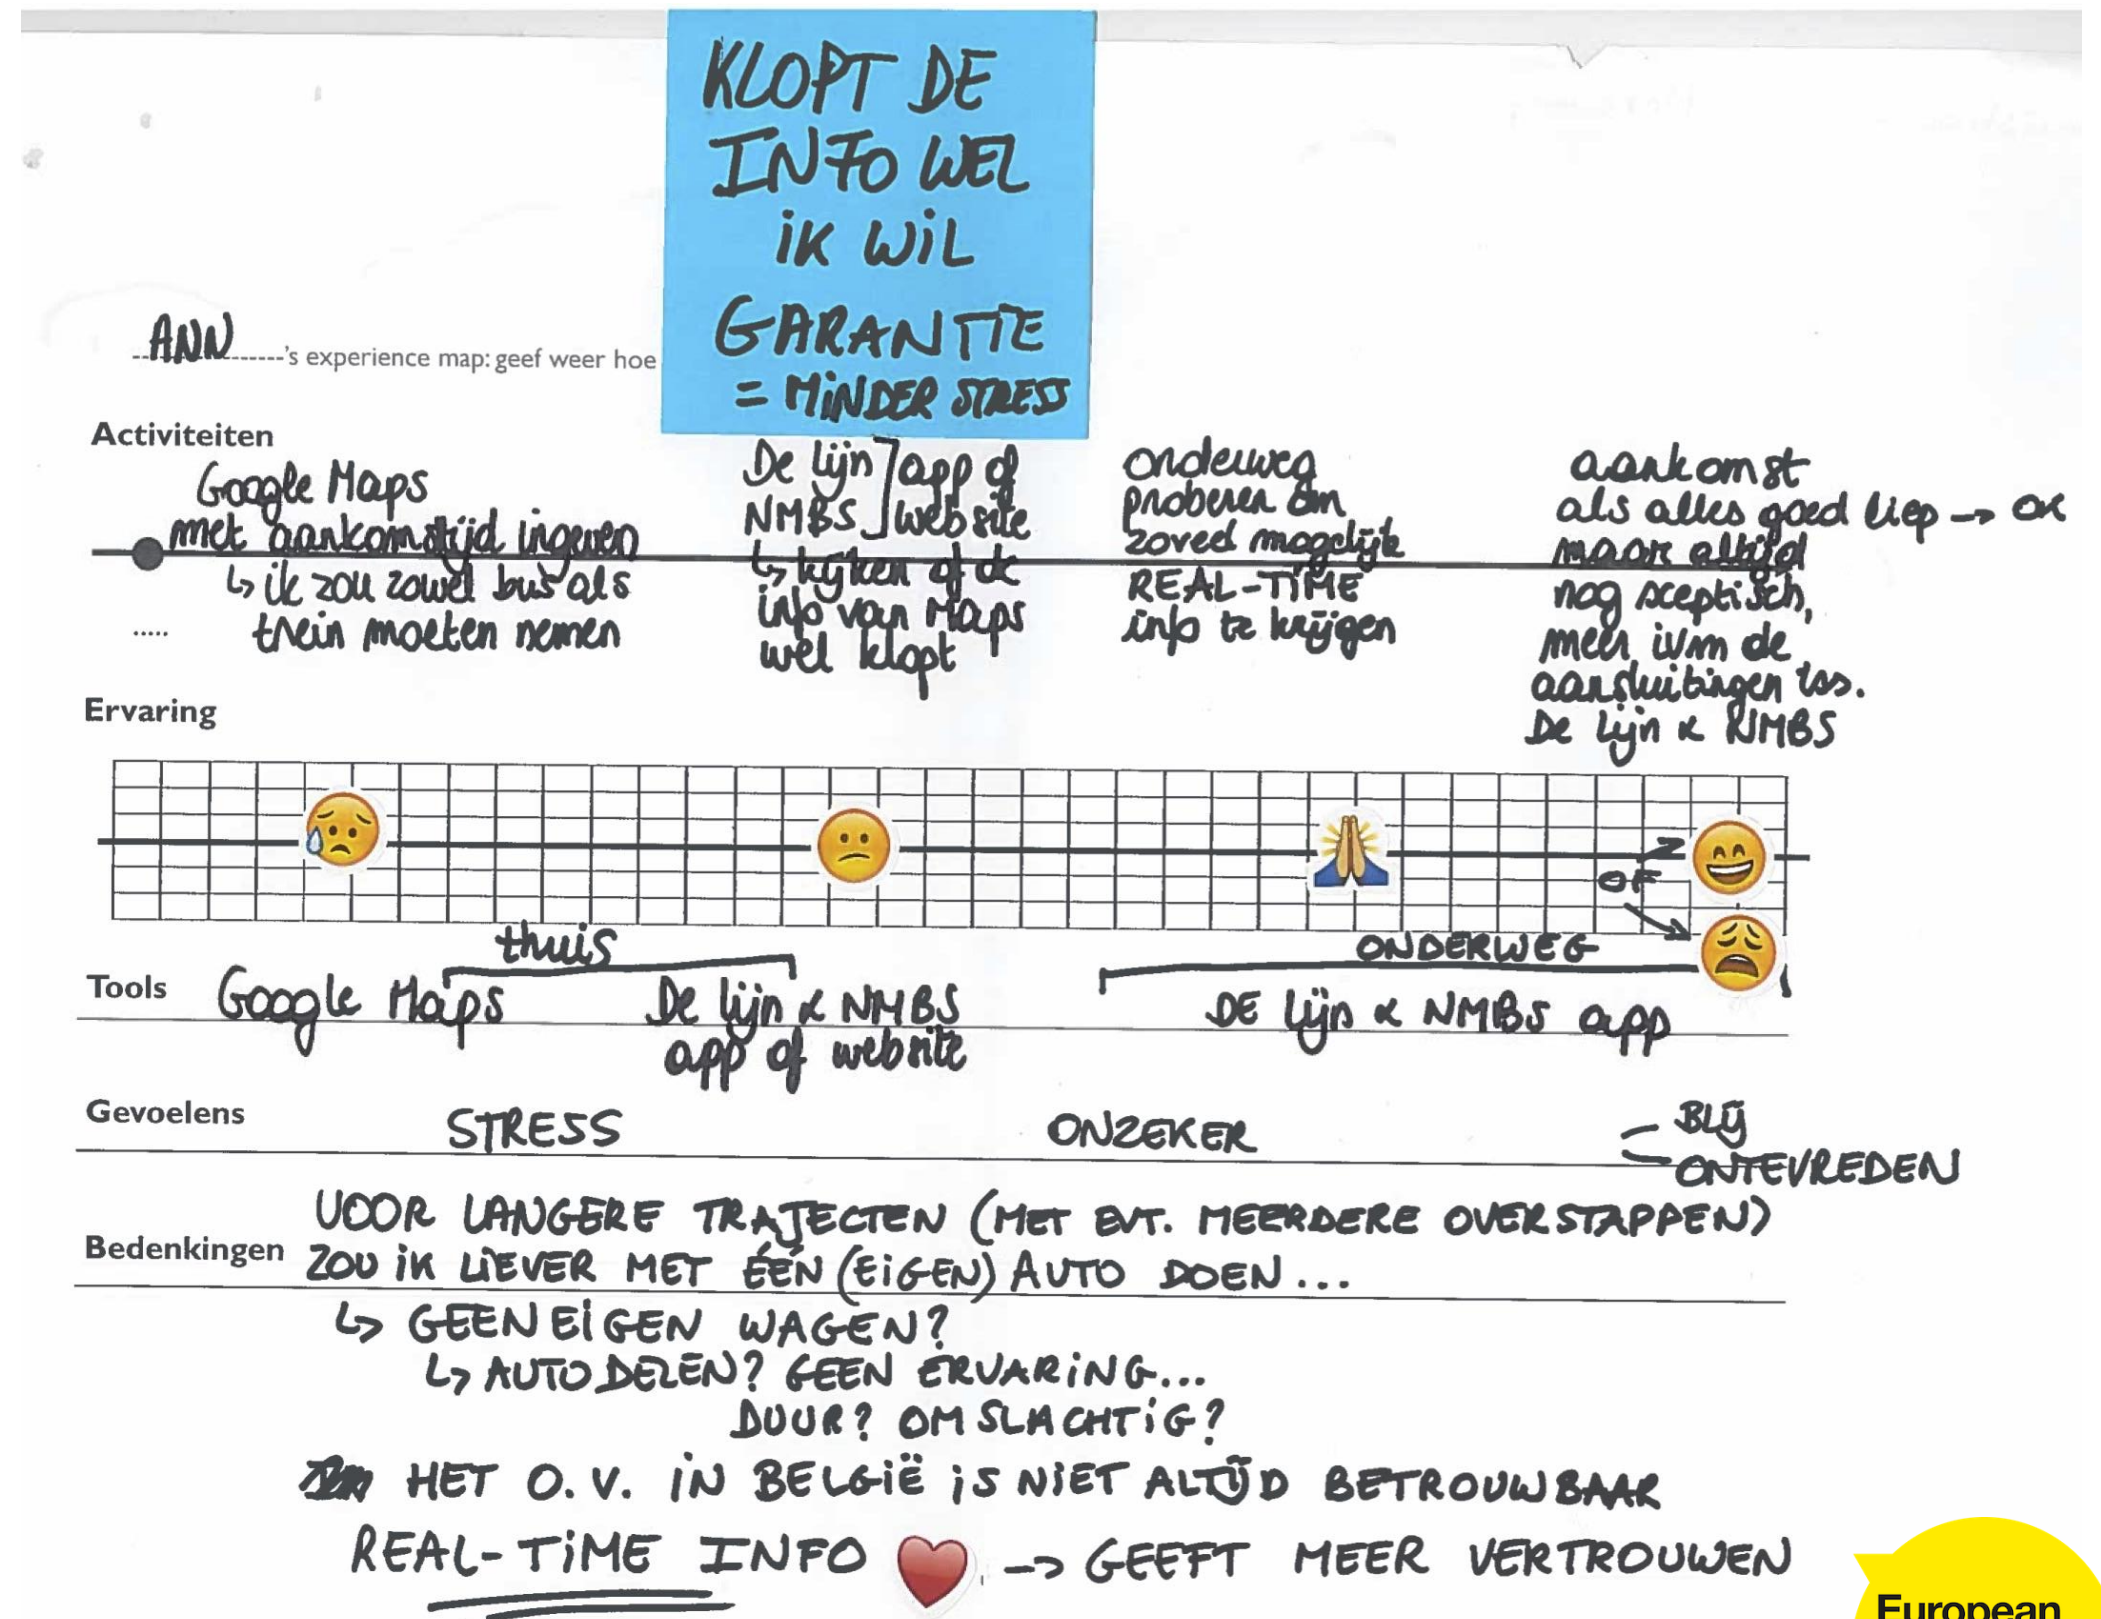 KLOPT DE
INFO WEL
iK WiL
GARANTIE
= MiNDER STRESS
ANN's experience map: geef weer hoe
Activiteiten
Google Maps
met aankomstijd ingeven
↳ ik zou zowel bus als
trein moeten nemen
.....
De lijn ] app of
NMBS ] website
↳ kijken of de
info van Maps
wel klopt
onderweg
proberen om
zoveel mogelijk
REAL-TIME
info te krijgen
aankomst
als alles goed liep → OK
maar altijd
nog sceptisch,
meer ivm de
aansluitingen tss.
De lijn & NMBS
Ervaring
OF
thuis
ONDERWEG
Tools
Google Maps
De lijn & NMBS
app of website
DE lijn & NMBS app
Gevoelens
STRESS
ONZEKER
BLIJ
ONTEVREDEN
Bedenkingen
VOOR LANGERE TRAJECTEN (MET EVT. MEERDERE OVERSTAPPEN)
ZOU iK LiEVER MET ÉÉN (EiGEN) AUTO DOEN...
↳ GEEN EiGEN WAGEN?
↳ AUTODELEN? GEEN ERVARiNG...
DUUR? OMSLACHTiG?
HET O.V. iN BELGiË iS NiET ALTIJD BETROUWBAAR
REAL-TiME INFO ❤ → GEEFT MEER VERTROUWEN
European